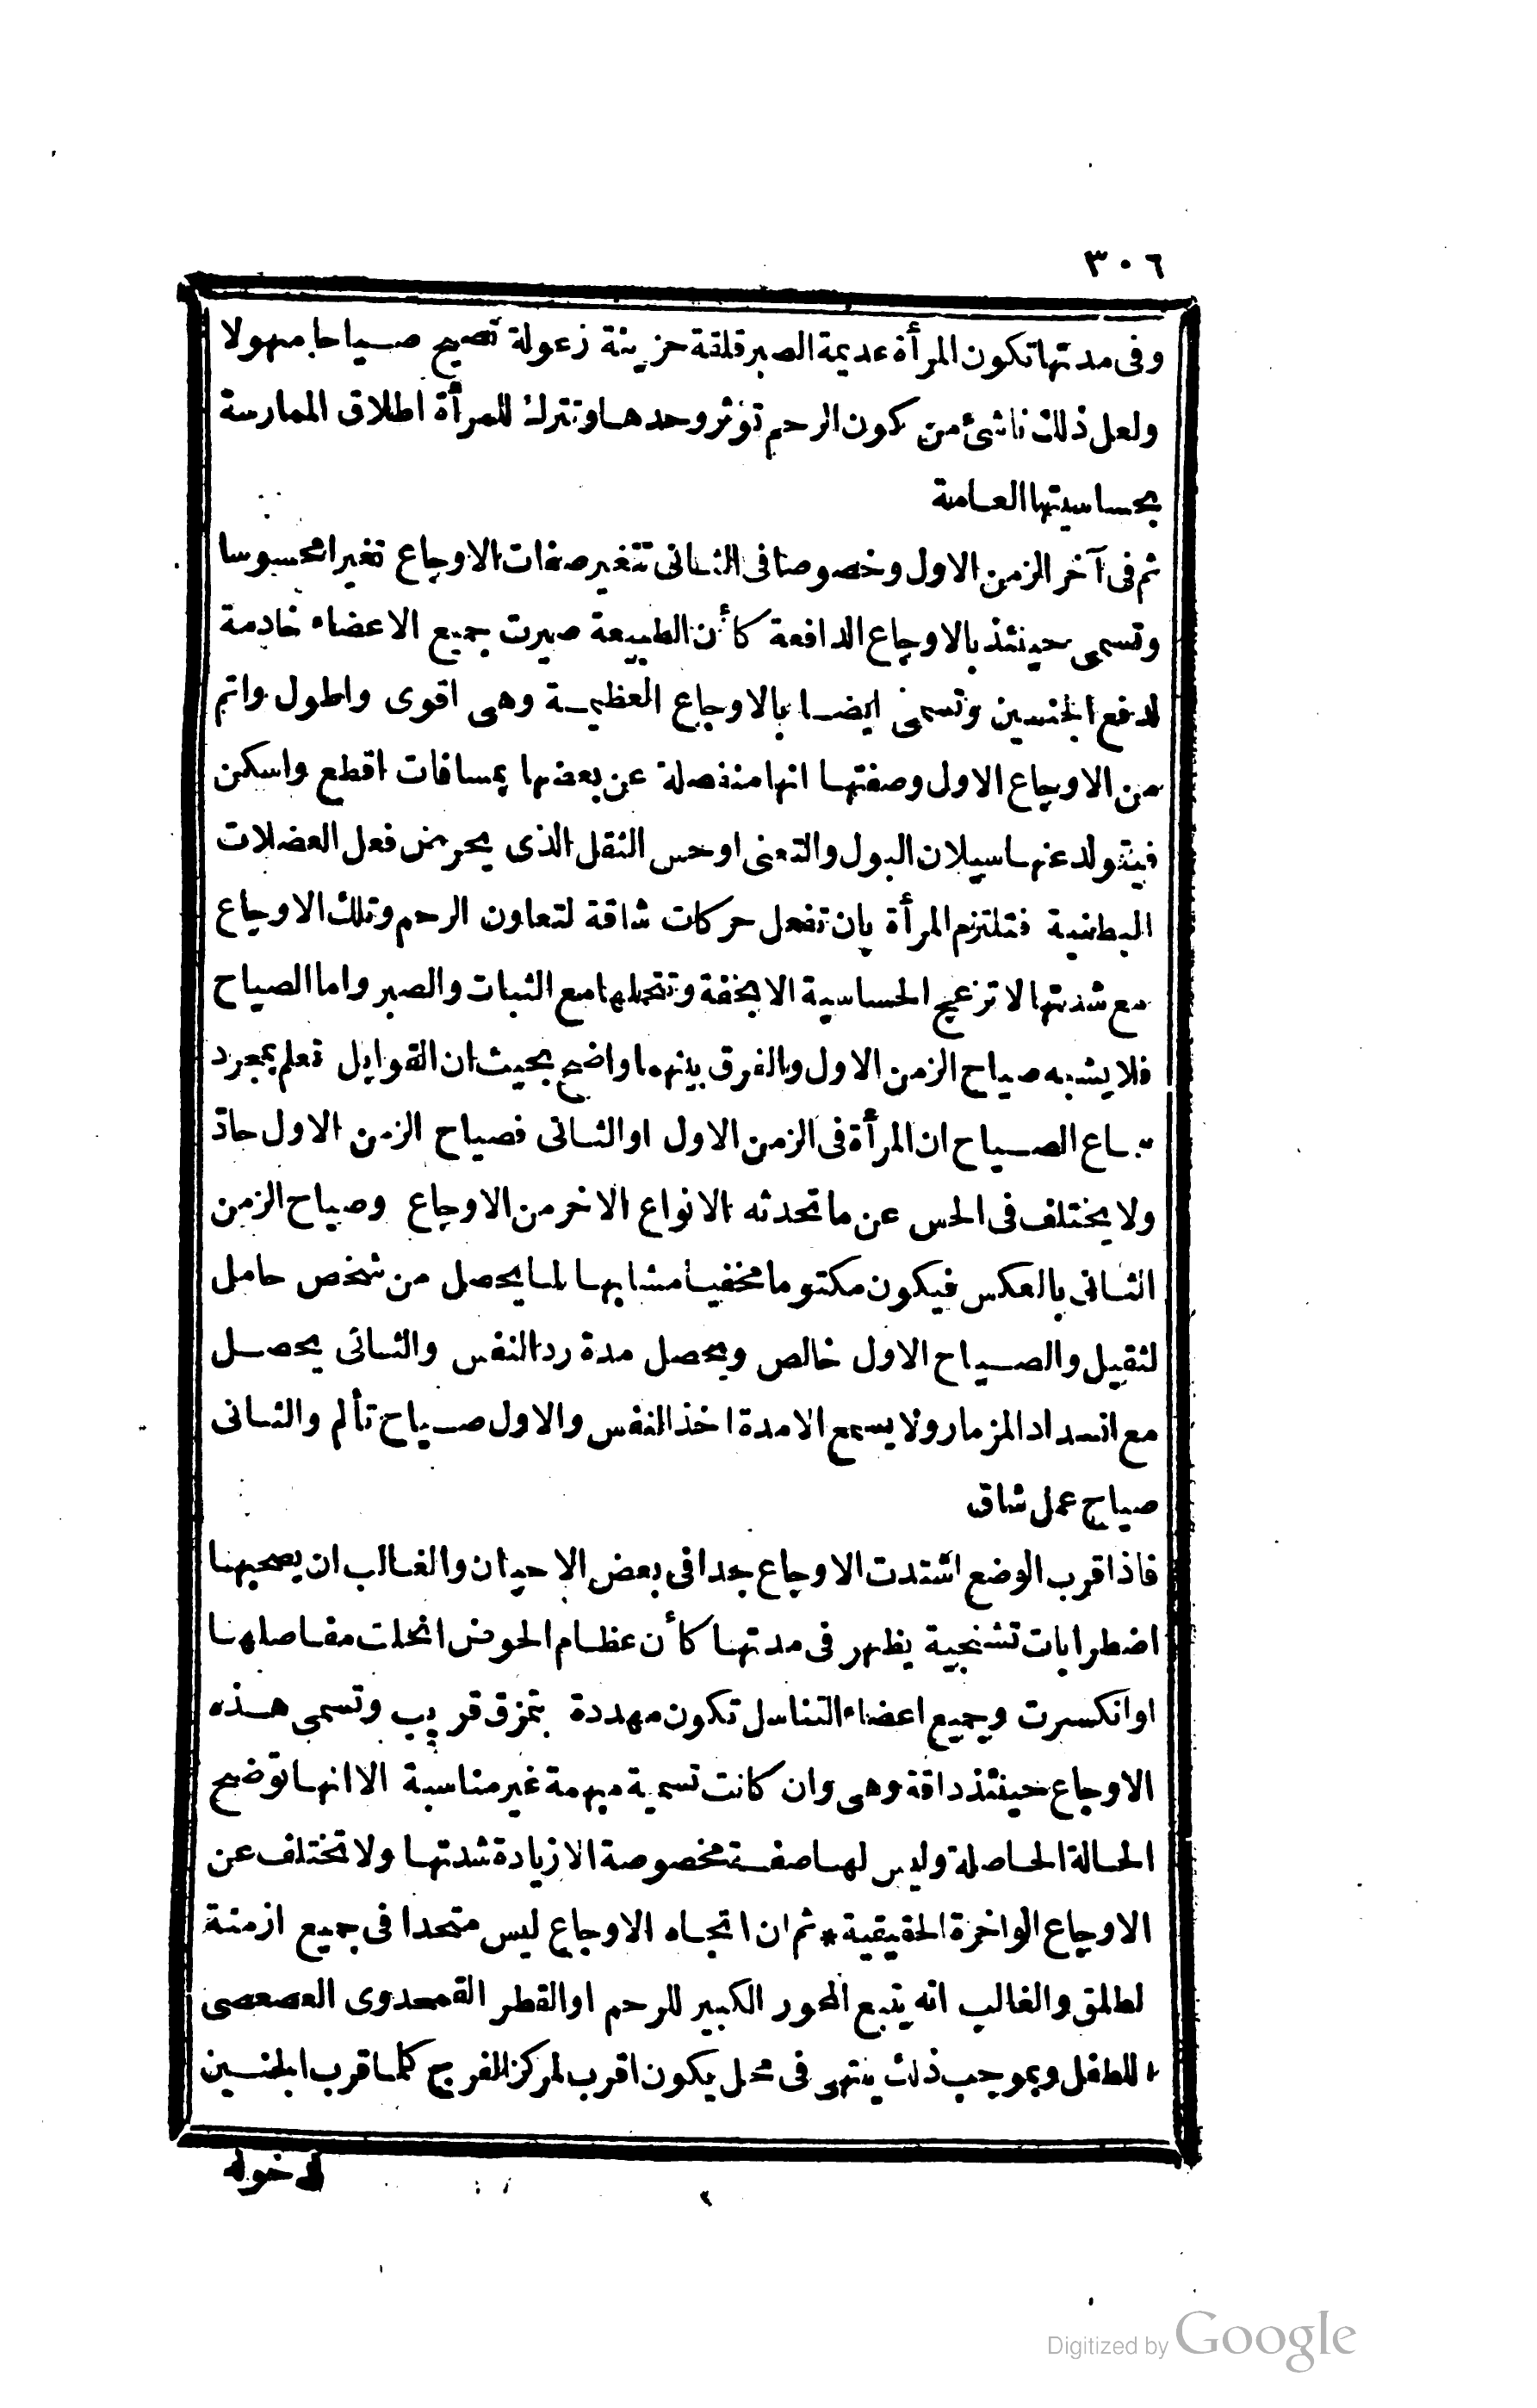 ٣٠٦
وفى مدتها تكون المرأة عديمة الصبر قلقة حزينة زعولة تصيح صياحا مهولا
ولعل ذلك ناشئ من كون الرحم تؤثر وحدها وتترك للمرأة اطلاق الممارسة
بحساسيتها العامة
ثم فى آخر الزمن الاول وخصوصا فى الثانى تتغير صفات الاوجاع تغيرا محسوسا
وتسمى حينئذ بالاوجاع الدافعة كأن الطبيعة صيرت جميع الاعضاء خادمة
لدفع الجنين وتسمى ايضا بالاوجاع العظيمة وهى اقوى واطول واتم
من الاوجاع الاول وصفتها انها منفصلة عن بعضها بمسافات اقطع واسكن
فيتولد عنها سيلان البول والتعنى او حس الثقل الذى يحرض فعل العضلات
البطنية فتلتزم المرأة بان تفعل حركات شاقة لتعاون الرحم وتلك الاوجاع
مع شدتها لا تزعج الحساسية الا بخفة وتتحملها مع الثبات والصبر واما الصياح
فلا يشبه صياح الزمن الاول والفرق بينهما واضح بحيث ان القوابل تعلم بمجرد
سماع الصياح ان المرأة فى الزمن الاول او الثانى فصياح الزمن الاول حاد
ولا يختلف فى الحس عن ما تحدثه الانواع الاخر من الاوجاع وصياح الزمن
الثانى بالعكس فيكون مكتوما مخفيا مشابها لما يحصل من شخص حامل
لثقيل والصياح الاول خالص ويحصل مدة رد النفس والثانى يحصل
مع انسداد المزمار ولا يسمع الا مدة اخذ النفس والاول صياح تألم والثانى
صياح عمل شاق
فاذا قرب الوضع اشتدت الاوجاع جدا فى بعض الاحيان والغالب ان يصحبها
اضطرابات تشنجية يظهر فى مدتها كأن عظام الحوض انحلت مفاصلها
او انكسرت وجميع اعضاء التناسل تكون مهددة بتمزق قريب وتسمى هذه
الاوجاع حينئذ داقة وهى وان كانت تسمية مبهمة غير مناسبة الا انها توضح
الحالة الحاصلة وليس لها صفة مخصوصة الا زيادة شدتها ولا تختلف عن
الاوجاع الواخرة الحقيقية * ثم ان اتجاه الاوجاع ليس متحدا فى جميع ازمنة
لطلق والغالب انه يتبع المحور الكبير للرحم او القطر القمحدوى العصعصى
للطفل وبموجب ذلك ينتهى فى محل يكون اقرب لمركز الفرج كلما قرب الجنين
لدخوله
Digitized by Google